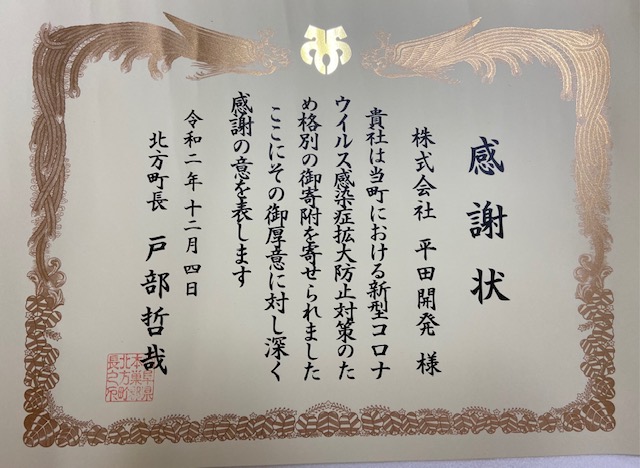 感謝状
株式会社 平田開発 様
貴社は当町における新型コロナ
ウイルス感染症拡大防止対策のた
め格別の御寄附を寄せられました
ここにその御厚意に対し深く
感謝の意を表します
令和二年十二月四日
北方町長 戸部哲哉
岐阜県
本巣郡
北方町
長之印